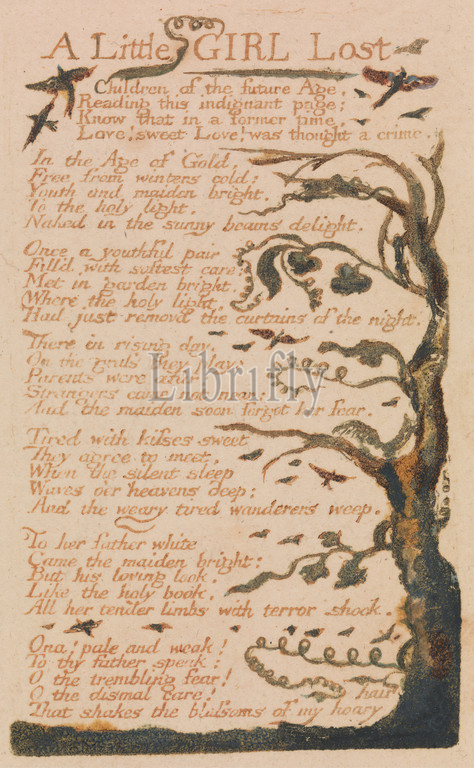 A Little GIRL Lost
Children of the future Age,
Reading this indignant page;
Know that in a former time,
Love! sweet Love! was thought a crime.
In the Age of Gold,
Free from winters cold:
Youth and maiden bright,
To the holy light,
Naked in the sunny beams delight.
Once a youthful pair
Fill'd with softest care:
Met in garden bright,
Where the holy light,
Had just removd the curtains of the night.
There in rising day,
On the grass they play:
Parents were afar:
Strangers came not near:
And the maiden soon forgot her fear.
Librifly
Tired with kisses sweet
They agree to meet,
When the silent sleep
Waves o'er heavens deep:
And the weary tired wanderers weep.
To her father white
Came the maiden bright:
But his loving look,
Like the holy book,
All her tender limbs with terror shook.
Ona! pale and weak!
To thy father speak:
O the trembling fear!
O the dismal care!
hair
That shakes the blossoms of my hoary